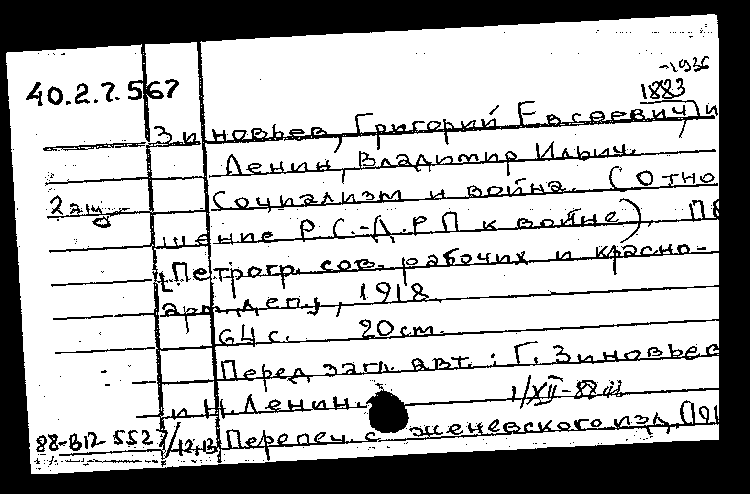 -1936
40.2.7.567
1883
Зиновьев, Григорий Евсеевич, и
Ленин, Владимир Ильич.
2 экз
Социализм и война. (Отно
шение Р.С.-Д.Р.П к войне). П
[Петрогр. сов. рабочих и красно-
арм. деп.], 1918
64 с. 20 см.
Перед загл. авт.: Г. Зиновьев
и Н. Ленин.
1/XII-88
88-В12-5527/12,13 Перепеч. с женевского изд. (191